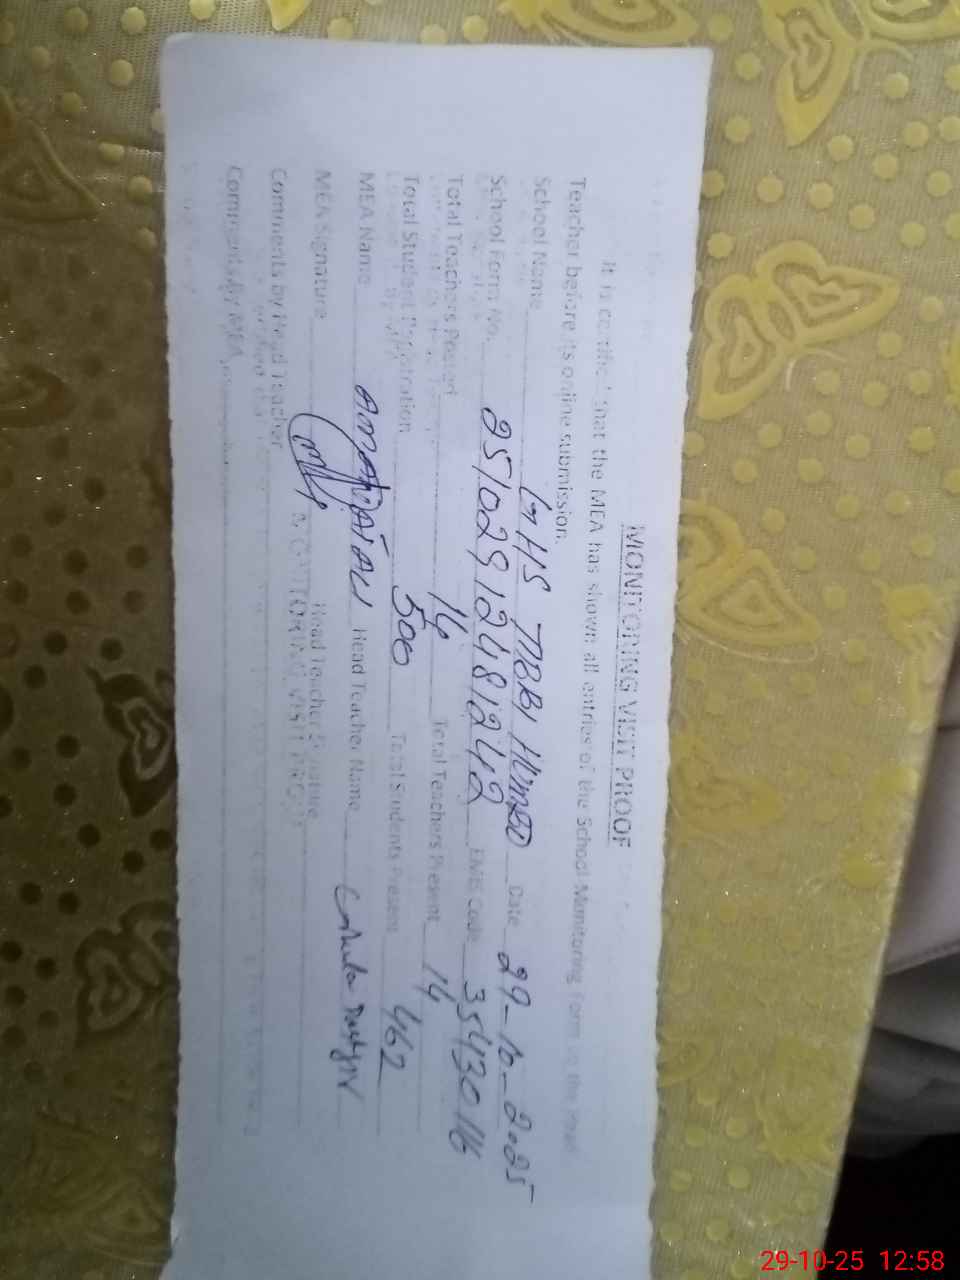 MONITORING VISIT PROOF
It is certified that the MEA has shown all entries of the School Monitoring Form to the Head
Teacher before its online submission.
School Name GHS TIBBI HUMBO Date 29-10-2025
School Form No. 25102912481242 EMIS Code 35430116
Total Teachers Posted 16 Total Teachers Present 14
Total Student Registration 500 Total Students Present 462
MEA Name Head Teacher Name
MEA Signature Head Teacher Signature
Comments by Head Teacher
MONITORING VISIT PROOF
Comments by MEA
29-10-25 12:58